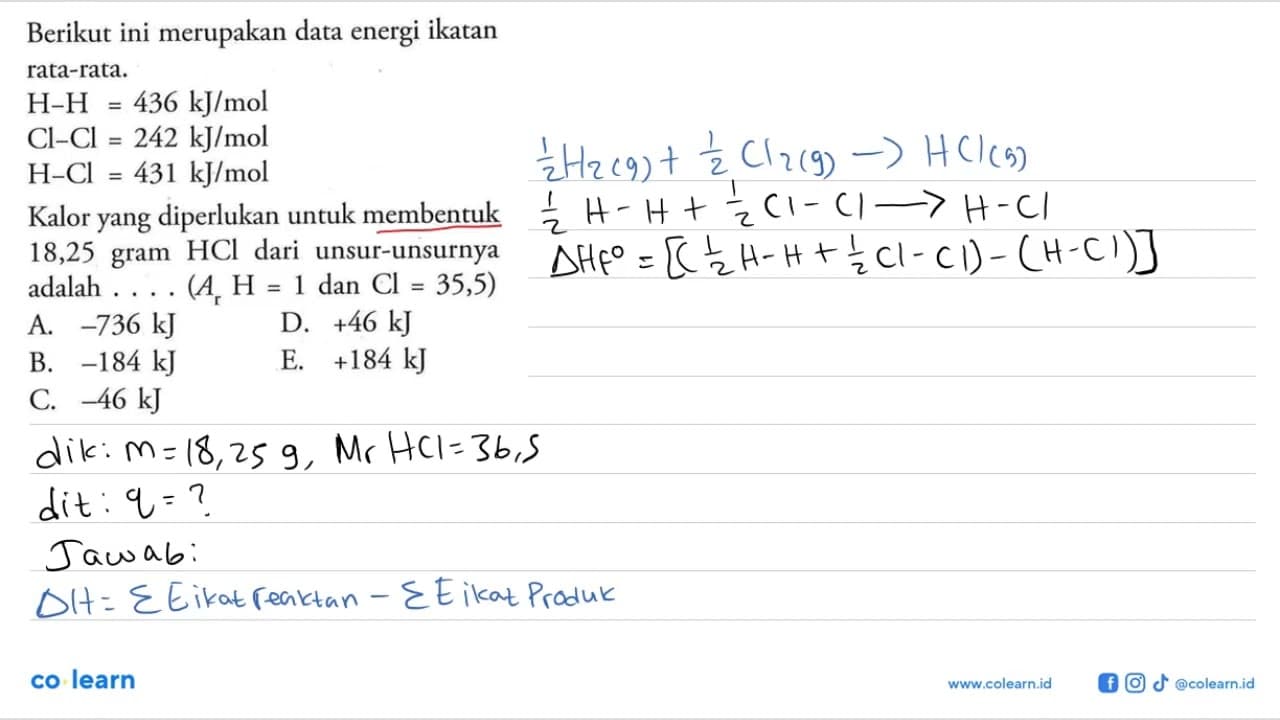 Berikut ini merupakan data energi ikatan
rata-rata.
H–H = 436 kJ/mol
Cl–Cl = 242 kJ/mol
H–Cl = 431 kJ/mol
Kalor yang diperlukan untuk membentuk
18,25 gram HCl dari unsur-unsurnya
adalah . . . . (Aᵣ H = 1 dan Cl = 35,5)
A. –736 kJ D. +46 kJ
B. –184 kJ E. +184 kJ
C. –46 kJ
½H₂(g) + ½Cl₂(g) → HCl(g)
½ H-H + ½ Cl-Cl → H-Cl
ΔHf° = [(½ H-H + ½ Cl-Cl) - (H-Cl)]
dik: m = 18,25 g, Mr HCl = 36,5
dit: q = ?
Jawab:
ΔH = Σ E ikat reaktan - Σ E ikat Produk
co learn
www.colearn.id @colearn.id